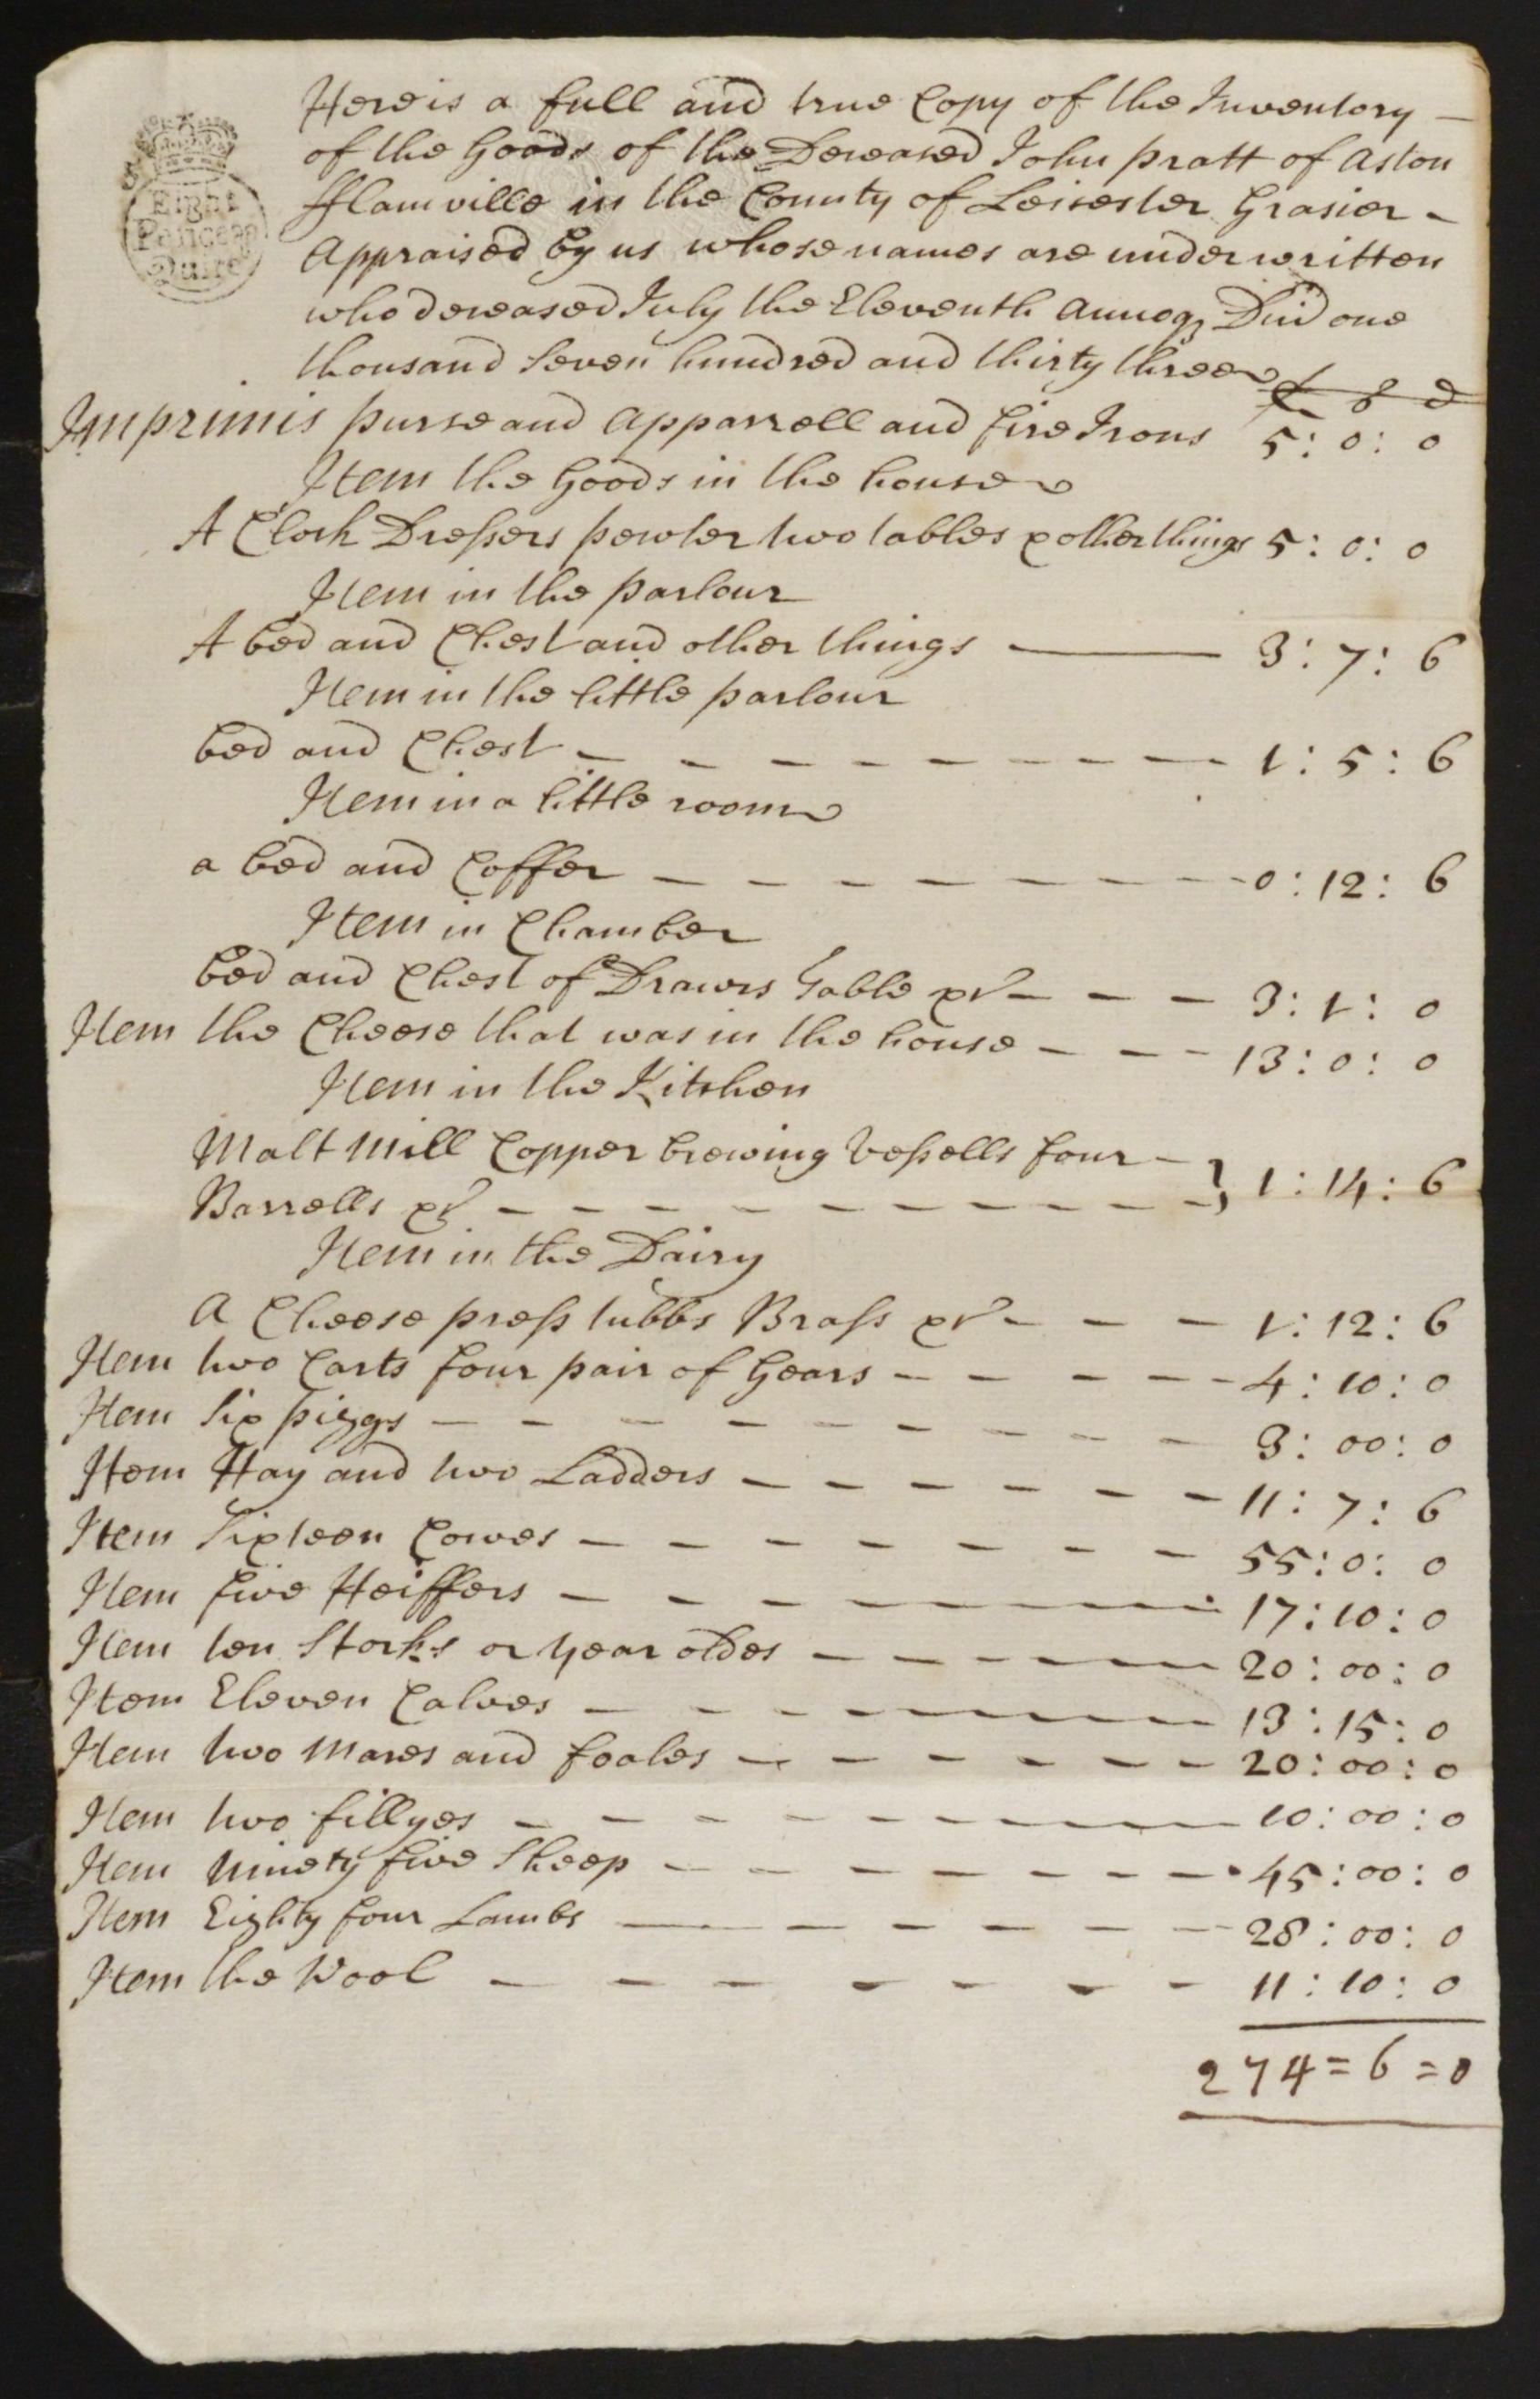 Eight
Pence ꝑ
Quire
Here is a full and true Copy of the Inventory —
of the Goods of the Deceased John pratt of Aston
fflamville in the County of Leicester Grasier -
Appraised by us whose names are underwritten
who deceased July the Eleventh Annoq Dni one
thousand Seven hundred and thirty three
£ s d
Imprimis purse and Apparrell and fire Irons 5 : 0 : 0
Item the Goods in the house
A Clock Dressers pewter two tables & other things 5 : 0 : 0
Item in the parlour
A bed and Chest and other things — 3 : 7 : 6
Item in the little parlour
bed and Chest - - - - - - - - 1 : 5 : 6
Item in a little room
a bed and Coffer - - - - - - - 0 : 12 : 6
Item in Chamber
bed and Chest of Drawrs Table &c - - - 3 : 1 : 0
Item the Cheese that was in the house - - - 13 : 0 : 0
Item in the Kitchen
Malt Mill Copper brewing Vessells four -
Barrells &c - - - - - - - - - } 1 : 14 : 6
Item in the Dairy
A Cheese press tubbs Brass &c - - - 1 : 12 : 6
Item two Carts four pair of Gears - - - - - 4 : 10 : 0
Item Six piggs - - - - - - - - 3 : 00 : 0
Item Hay and two Ladders - - - - - - 11 : 7 : 6
Item Sixteen Cowes - - - - - - - 55 : 0 : 0
Item five Heiffers - - - - - - - 17 : 10 : 0
Item ten Storks or year oldes - - - - - 20 : 00 : 0
Item Eleven Calves - - - - - - - 13 : 15 : 0
Item two Mares and foales - - - - - - 20 : 00 : 0
Item two fillyes - - - - - - - - 10 : 00 : 0
Item Ninety five Sheep - - - - - - - 45 : 00 : 0
Item Eighty four Lambs - - - - - - 28 : 00 : 0
Item the Wool - - - - - - - 11 : 10 : 0
274 = 6 = 0